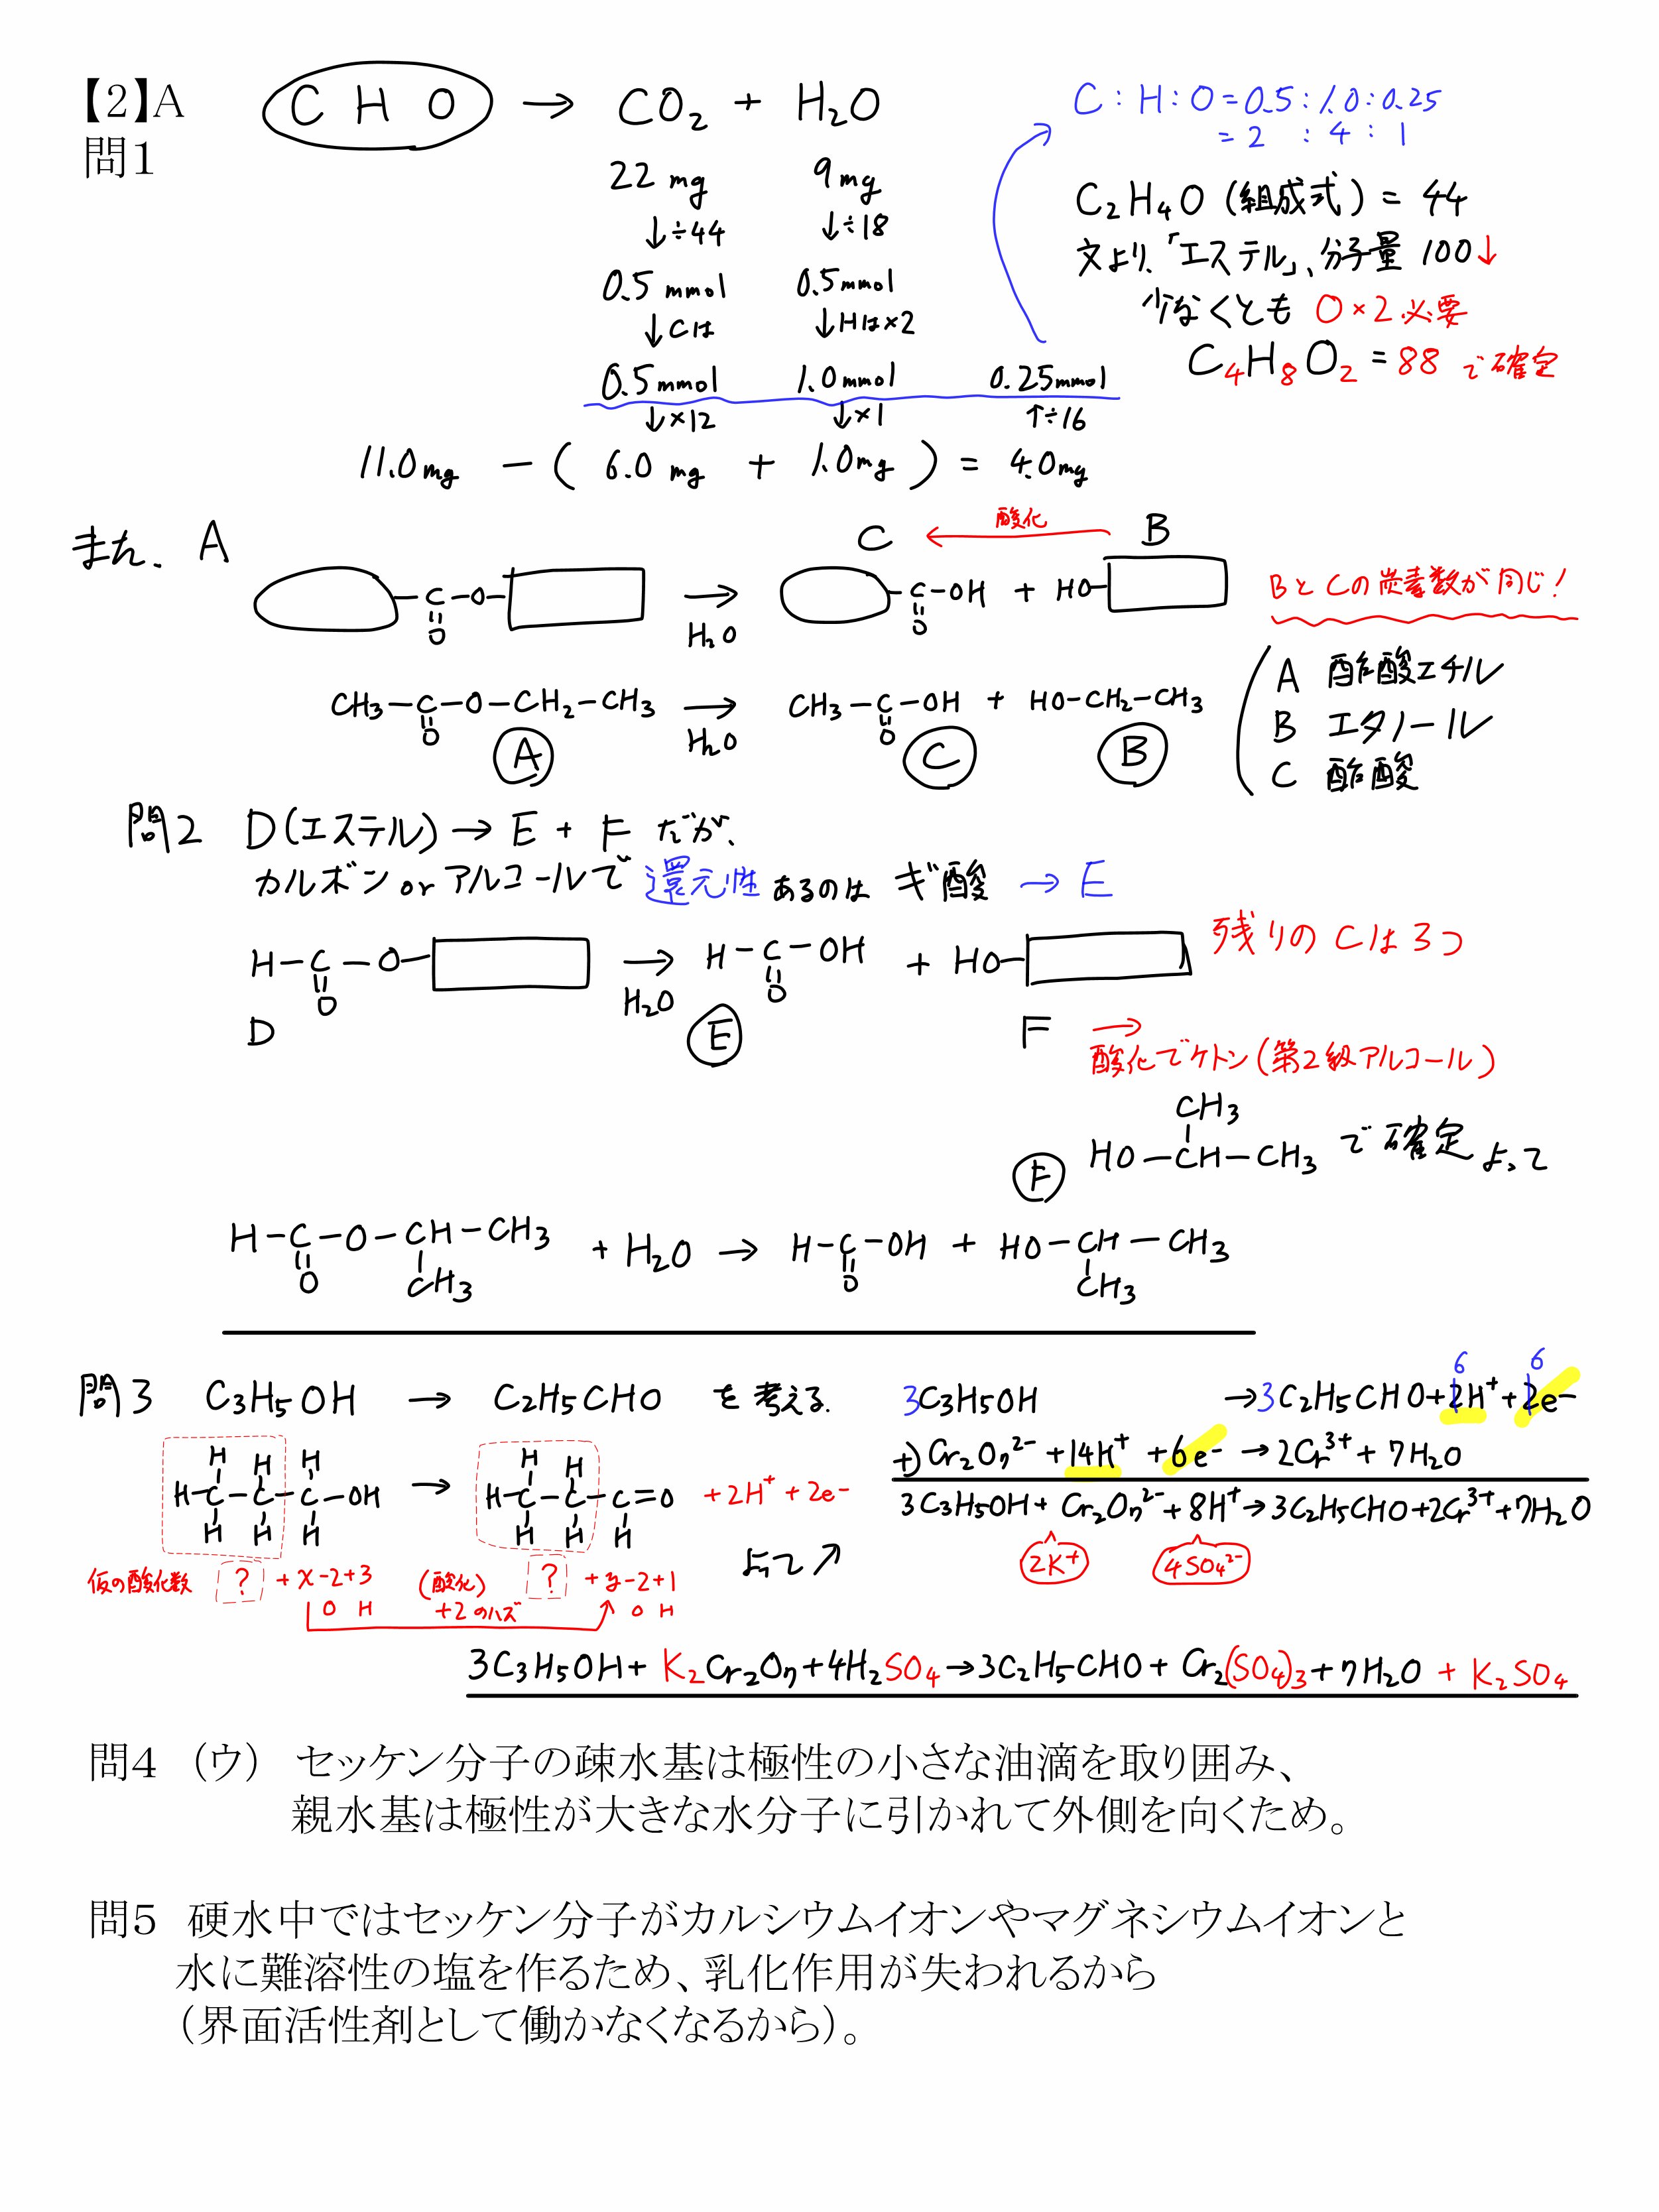 【2】A
問1
C H O → CO₂ + H₂O
22 mg 9mg
↓÷44 ↓÷18
0.5 mmol 0.5mmol
↓Cは ↓Hは×2
0.5mmol 1.0mmol 0.25mmol
↓×12 ↓×1 ↑÷16
11.0mg − ( 6.0 mg + 1.0mg ) = 4.0mg
C : H : O = 0.5 : 1.0 : 0.25
= 2 : 4 : 1
C₂H₄O (組成式) = 44
文より、「エステル」、分子量 100↓
少なくとも O×2必要
C₄H₈O₂ = 88 で確定
また、A
C ← 酸化 B
−C−O− → C−OH + HO−
O H₂O O
BとCの炭素数が同じ!
CH₃−C−O−CH₂−CH₃ → CH₃−C−OH + HO−CH₂−CH₃
O H₂O O
A C B
A 酢酸エチル
B エタノール
C 酢酸
問2 D(エステル)→E + F だが、
カルボン or アルコールで 還元性 あるのは ギ酸 → E
H−C−O− → H−C−OH + HO− 残りのCは3つ
O H₂O O
D E F →
酸化でケトン(第2級アルコール)
CH₃
F HO−CH−CH₃ で確定 よって
H−C−O−CH−CH₃ + H₂O → H−C−OH + HO−CH−CH₃
O CH₃ O CH₃
問3 C₃H₅OH → C₂H₅CHO を考える.
H H H H H
H−C−C−C−OH → H−C−C−C=O + 2H⁺ + 2e−
H H H H H H
仮の酸化数 ? + x−2+3 (酸化) ? + y−2+1
O H +2のハズ O H
よって↗
6 6
3C₃H₅OH → 3C₂H₅CHO+2H⁺+2e−
+) Cr₂O₇²⁻ +14H⁺ +6e− → 2Cr³⁺ + 7H₂O
3C₃H₅OH+ Cr₂O₇²⁻+8H⁺→3C₂H₅CHO+2Cr³⁺+7H₂O
2K⁺ 4SO₄²⁻
3C₃H₅OH+ K₂Cr₂O₇+4H₂SO₄→3C₂H₅CHO+ Cr₂(SO₄)₃+7H₂O + K₂SO₄
問4 (ウ) セッケン分子の疎水基は極性の小さな油滴を取り囲み、
親水基は極性が大きな水分子に引かれて外側を向くため。
問5 硬水中ではセッケン分子がカルシウムイオンやマグネシウムイオンと
水に難溶性の塩を作るため、乳化作用が失われるから
(界面活性剤として働かなくなるから)。